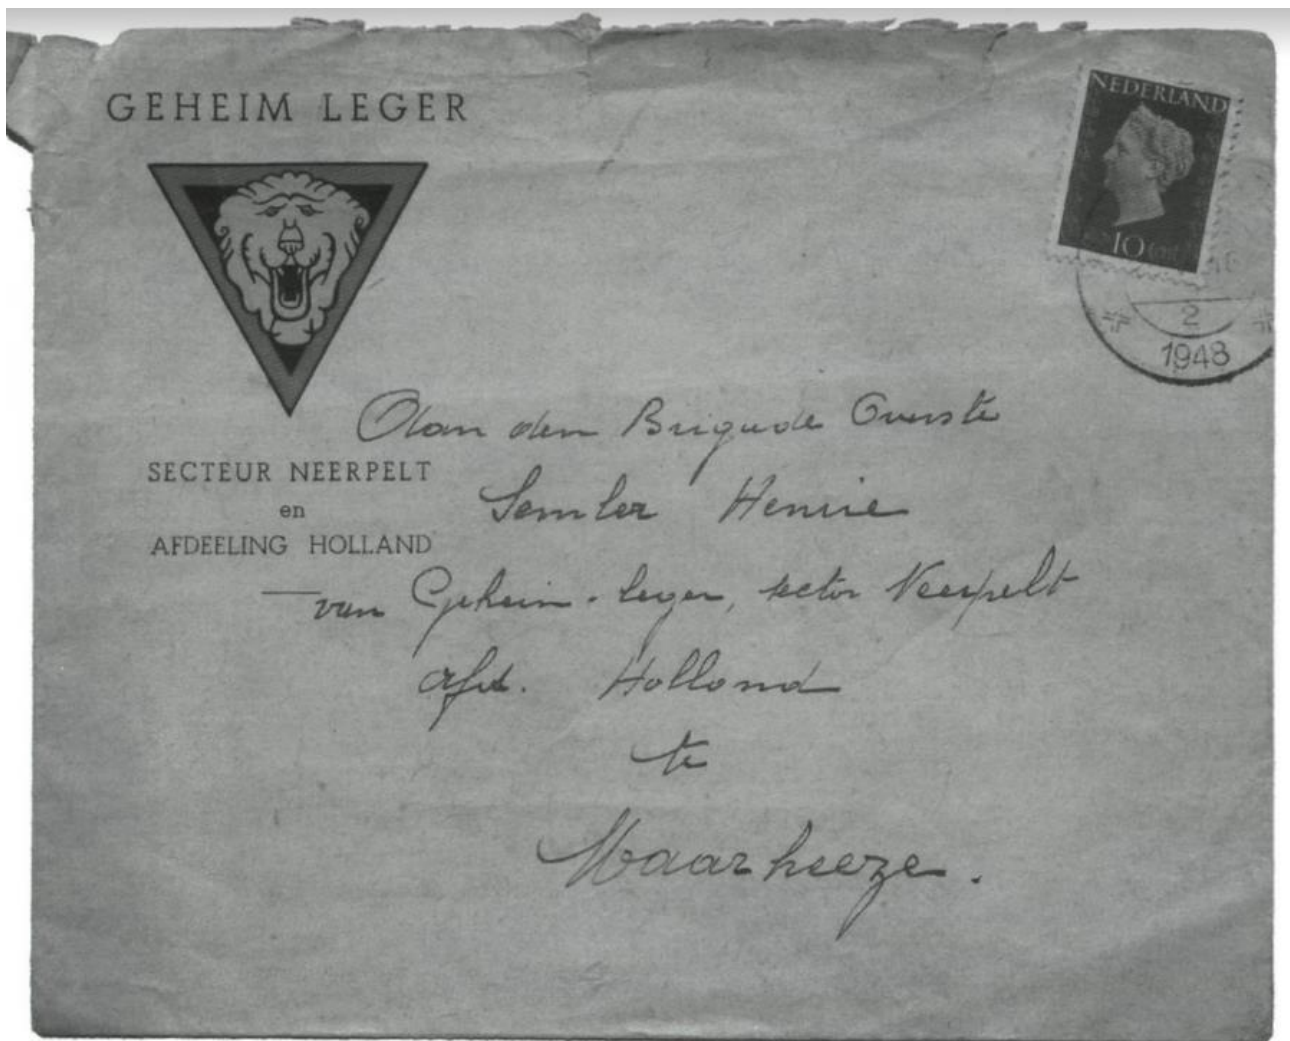 GEHEIM LEGER
NEDERLAND
10 cent
2
1948
SECTEUR NEERPELT
en
AFDEELING HOLLAND
Aan den Brigade Overste
Semler Henrie
van Geheim-leger, sector Neerpelt
afd. Holland
te
Maarheeze.